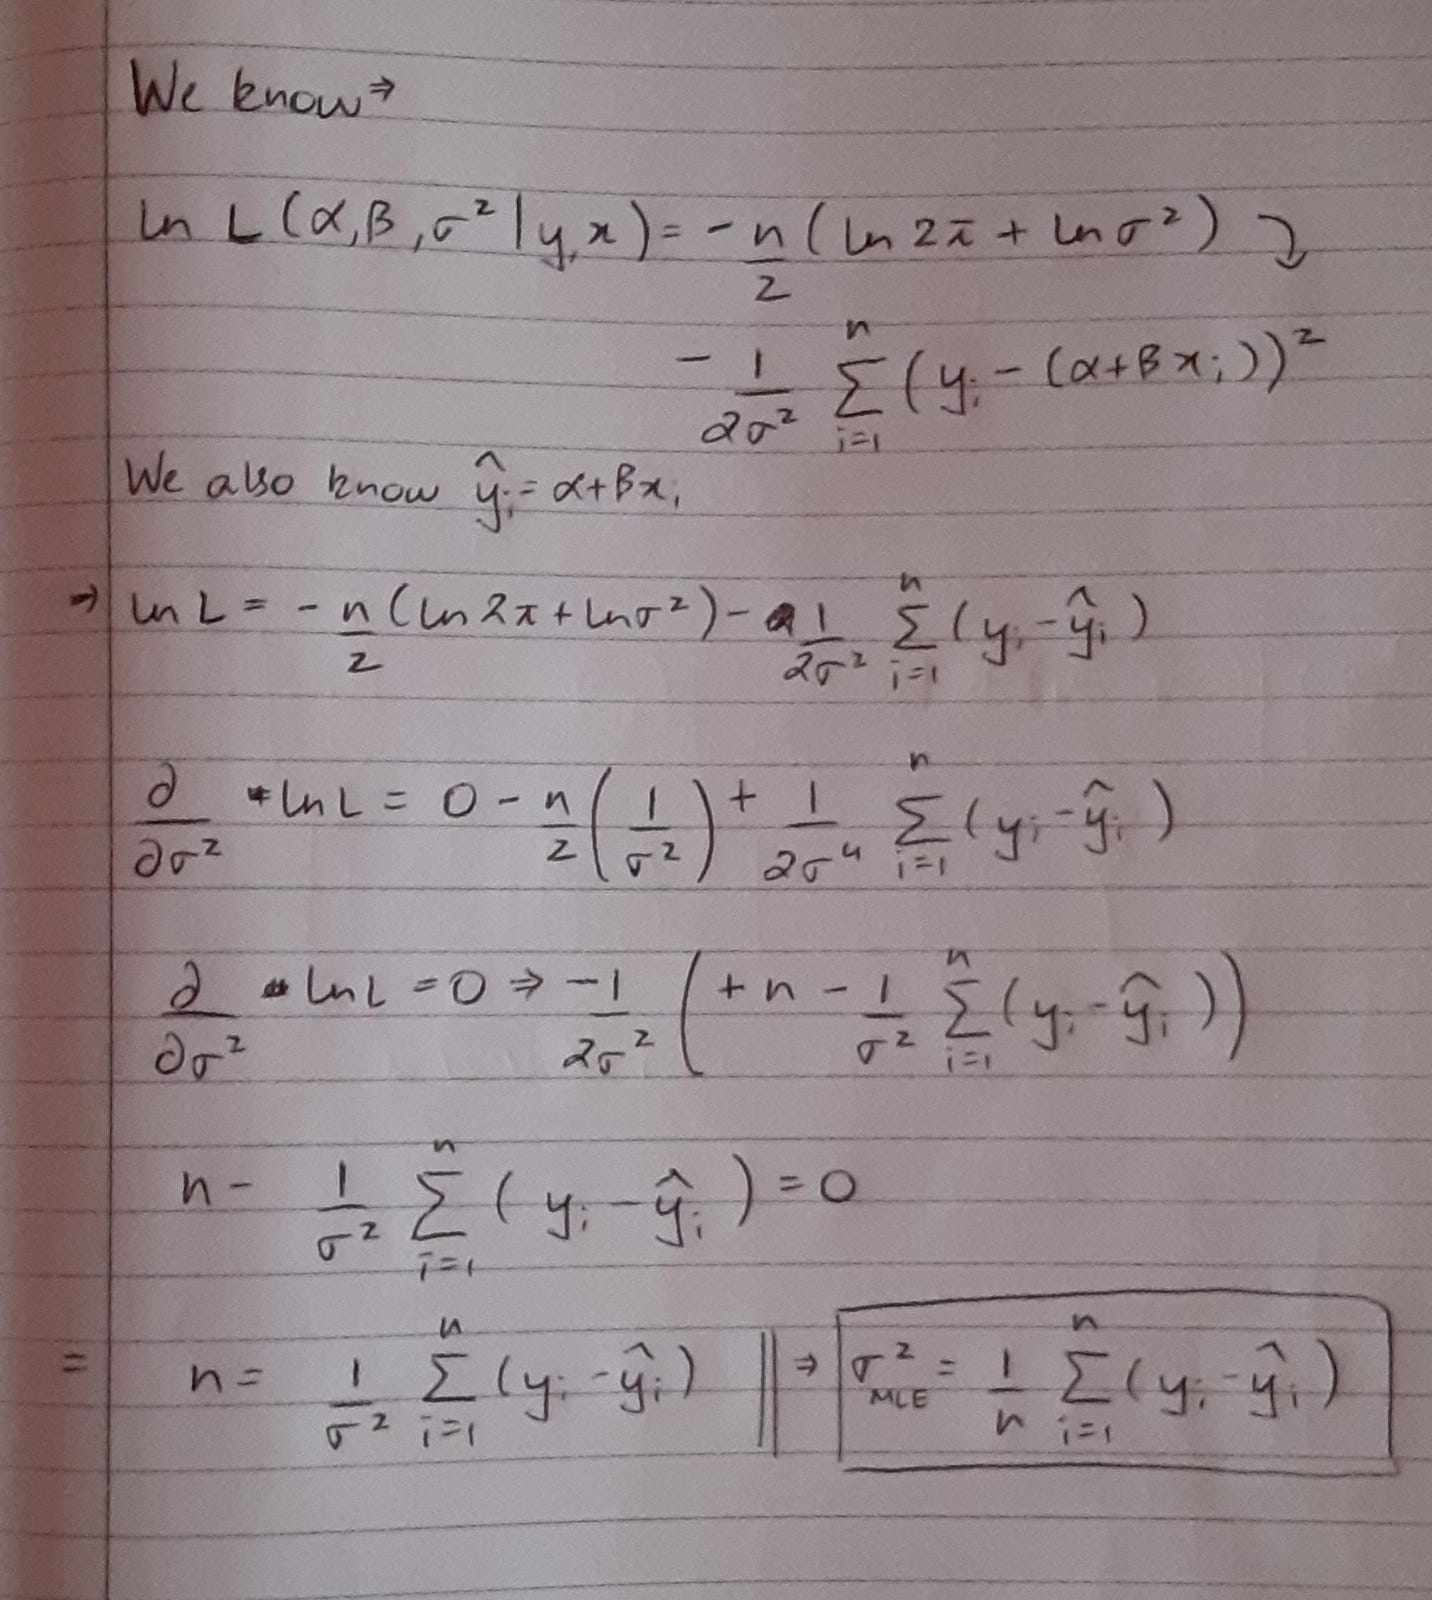 We know ⇒
ln L (α, β, σ² | y, x) = - n/2 ( ln 2π + ln σ² ) ⤵
- 1/2σ² n Σ i=1 ( yᵢ - (α + β xᵢ))²
We also know ŷᵢ = α + βxᵢ
⇒ ln L = - n/2 ( ln 2π + ln σ² ) - 1/2σ² n Σ i=1 ( yᵢ - ŷᵢ )
∂/∂σ² ln L = 0 - n/2 ( 1/σ² ) + 1/2σ⁴ n Σ i=1 ( yᵢ - ŷᵢ )
∂/∂σ² ln L = 0 ⇒ -1/2σ² ( + n - 1/σ² n Σ i=1 ( yᵢ - ŷᵢ ) )
n - 1/σ² n Σ i=1 ( yᵢ - ŷᵢ ) = 0
= n = 1/σ² n Σ i=1 ( yᵢ - ŷᵢ ) || ⇒ σ² MLE = 1/n n Σ i=1 ( yᵢ - ŷᵢ )